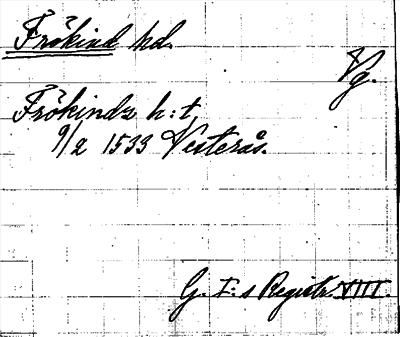 Frökind hd.
Vg.
Frökindz h:t
9/2 1533 Vesterås.
G. I:s Registr. VIII.